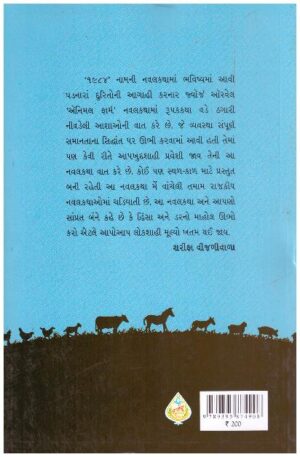 '૧૯૮૪' નામની નવલકથામાં ભવિષ્યમાં આવી
પડનારાં દુરિતોની આગાહી કરનાર જ્યોર્જ ઓરવેલ
'ઍનિમલ ફાર્મ' નવલકથામાં રૂપકકથા વડે ઠગારી
નીવડેલી આશાઓની વાત કરે છે. જે વ્યવસ્થા સંપૂર્ણ
સમાનતાના સિદ્ધાંત પર ઊભી કરવામાં આવી હતી તેમાં
પણ કેવી રીતે આપખુદશાહી પ્રવેશી જાય તેની આ
નવલકથા વાત કરે છે. કોઈ પણ સ્થળ-કાળ માટે પ્રસ્તુત
બની રહેતી આ નવલકથા મેં વાંચેલી તમામ રાજકીય
નવલકથાઓમાં ચડિયાતી છે. આ નવલકથા અને આપણો
સાંપ્રત બંને કહે છે કે હિંસા અને ડરનો માહોલ ઊભો
કરો એટલે આપોઆપ લોકશાહી મૂલ્યો ખતમ થઈ જાય.
શરીફા વીજળીવાળા
₹ 200